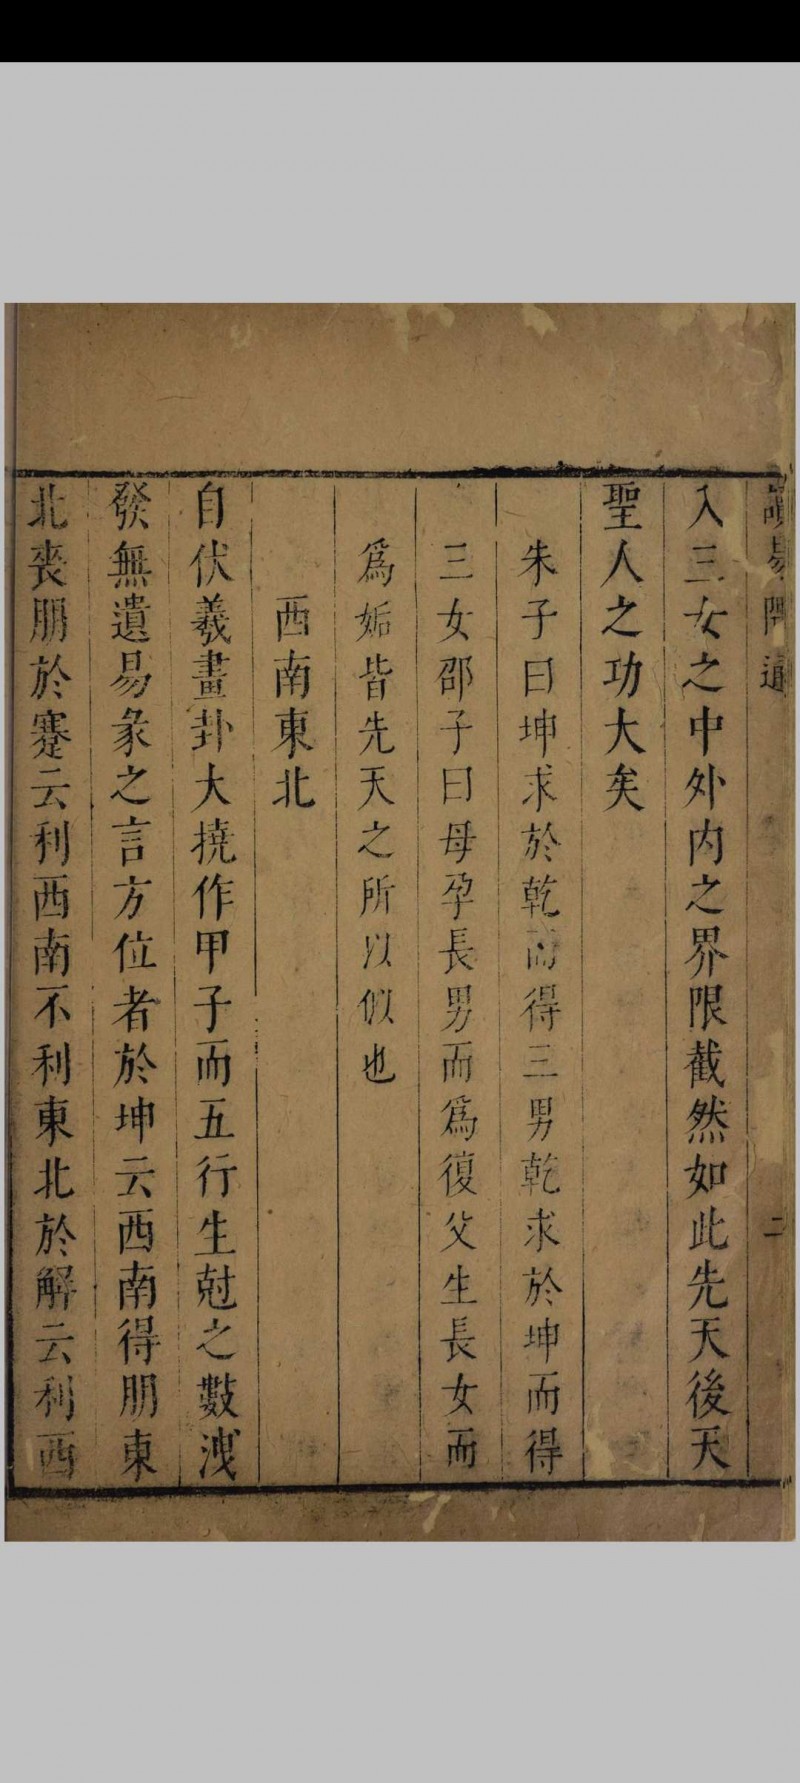 讀易隅通
二
入三女之中外内之界限截然如此先天後天
聖人之功大矣
朱子曰坤求於乾而得三男乾求於坤而得
三女邵子曰母孕長男而爲復父生長女而
爲姤皆先天之所以倣也
西南東北
自伏羲畫卦大撓作甲子而五行生尅之數洩
發無遺易彖之言方位者於坤云西南得朋東
北喪朋於蹇云利西南不利東北於解云利西